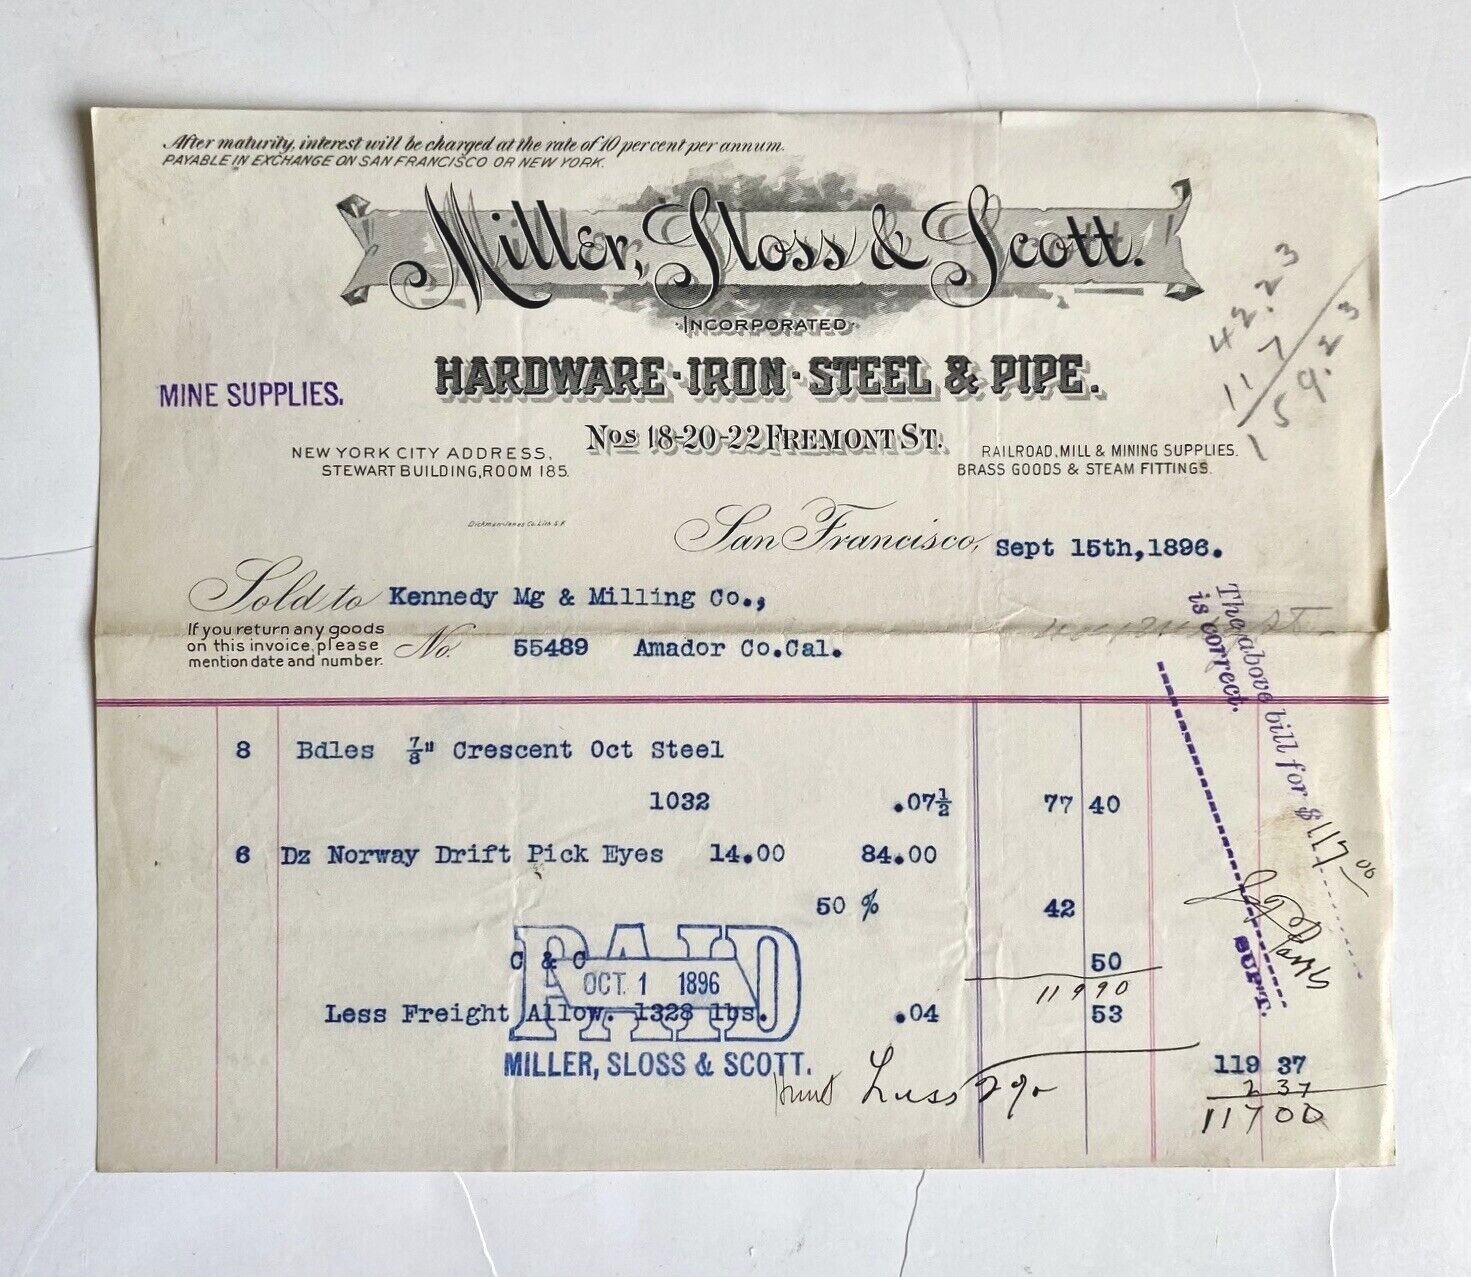 After maturity, interest will be charged at the rate of 10 per cent per annum.
PAYABLE IN EXCHANGE ON SAN FRANCISCO OR NEW YORK.
Miller, Sloss & Scott.
INCORPORATED
HARDWARE · IRON · STEEL & PIPE.
MINE SUPPLIES.
Nos 18-20-22 FREMONT ST.
NEW YORK CITY ADDRESS,
STEWART BUILDING, ROOM 185.
RAILROAD, MILL & MINING SUPPLIES.
BRASS GOODS & STEAM FITTINGS.
42.23
117
159.23
Dickman-Jones Co. Lith. S.F.
San Francisco, Sept 15th, 1896.
Sold to Kennedy Mg & Milling Co.,
If you return any goods
on this invoice, please
mention date and number.
No. 55489 Amador Co. Cal.
The above bill for $ 117 00
is correct.
SUPT.
8 Bdles 7/8" Crescent Oct Steel
1032 .07½ 77 40
6 Dz Norway Drift Pick Eyes 14.00 84.00
50 % 42
C & C 50
119 90
Less Freight Allow. 1328 lbs. .04 53
119 37
PAID
OCT. 1 1896
MILLER, SLOSS & SCOTT.
Less 2 %
2 37
117 00